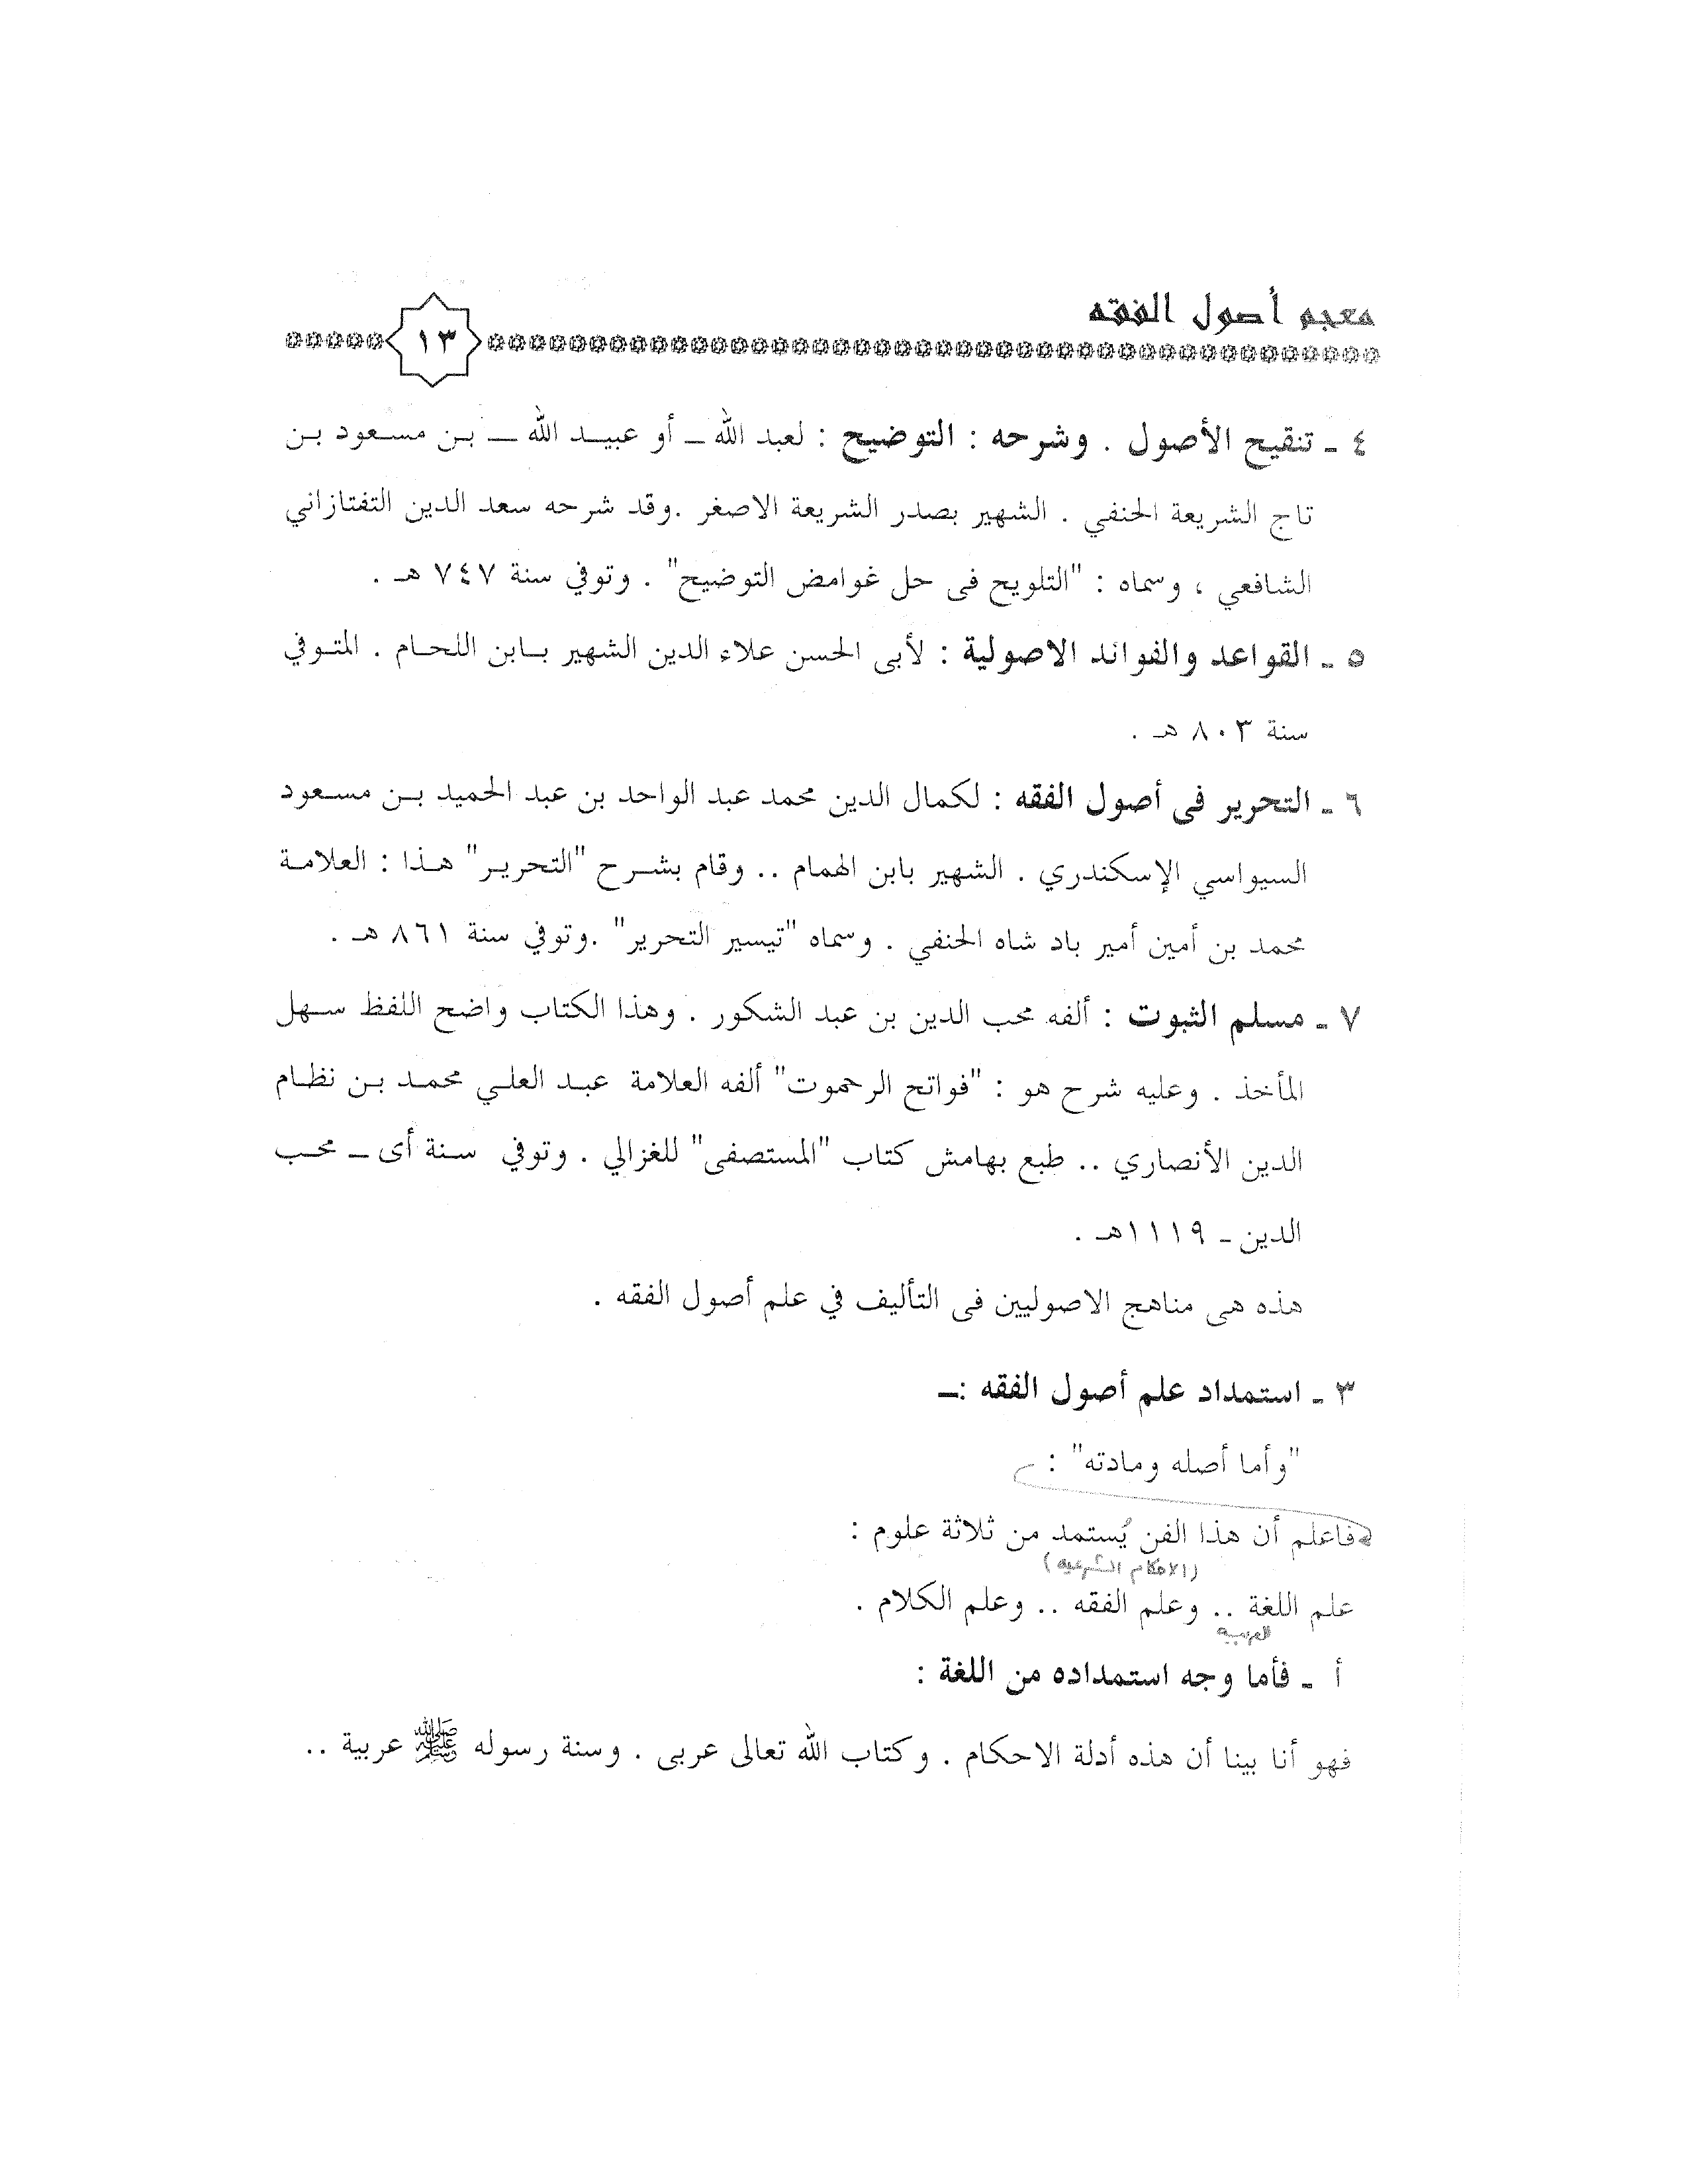 معجم أصول الفقه
١٣
٤ ـ تنقيح الأصول . وشرحه : التوضيح : لعبد الله ـ أو عبيد الله ـ بن مسعود بن
تاج الشريعة الحنفي . الشهير بصدر الشريعة الاصغر .وقد شرحه سعد الدين التفتازاني
الشافعي ، وسماه : "التلويح فى حل غوامض التوضيح" . وتوفي سنة ٧٤٧ هـ .
٥ ـ القواعد والفوائد الاصولية : لأبى الحسن علاء الدين الشهير بابن اللحام . المتوفي
سنة ٨٠٣ هـ .
٦ ـ التحرير فى أصول الفقه : لكمال الدين محمد عبد الواحد بن عبد الحميد بن مسعود
السيواسي الإسكندري . الشهير بابن الهمام .. وقام بشرح "التحرير" هذا : العلامة
محمد بن أمين أمير باد شاه الحنفي . وسماه "تيسير التحرير" .وتوفي سنة ٨٦١ هـ .
٧ ـ مسلم الثبوت : ألفه محب الدين بن عبد الشكور . وهذا الكتاب واضح اللفظ سهل
المأخذ . وعليه شرح هو : "فواتح الرحموت" ألفه العلامة عبد العلي محمد بن نظام
الدين الأنصاري .. طبع بهامش كتاب "المستصفى" للغزالي . وتوفي سنة أى ـ محب
الدين ـ ١١١٩هـ .
هذه هى مناهج الاصوليين فى التأليف في علم أصول الفقه .
٣ ـ استمداد علم أصول الفقه :ـ
"وأما أصله ومادته" :
فاعلم أن هذا الفن يُستمد من ثلاثة علوم :
(الاحكام الشرعيه)
علم اللغة .. وعلم الفقه .. وعلم الكلام .
العربيه
أ ـ فأما وجه استمداده من اللغة :
فهو أنا بينا أن هذه أدلة الاحكام . وكتاب الله تعالى عربى . وسنة رسوله ﷺ عربية ..